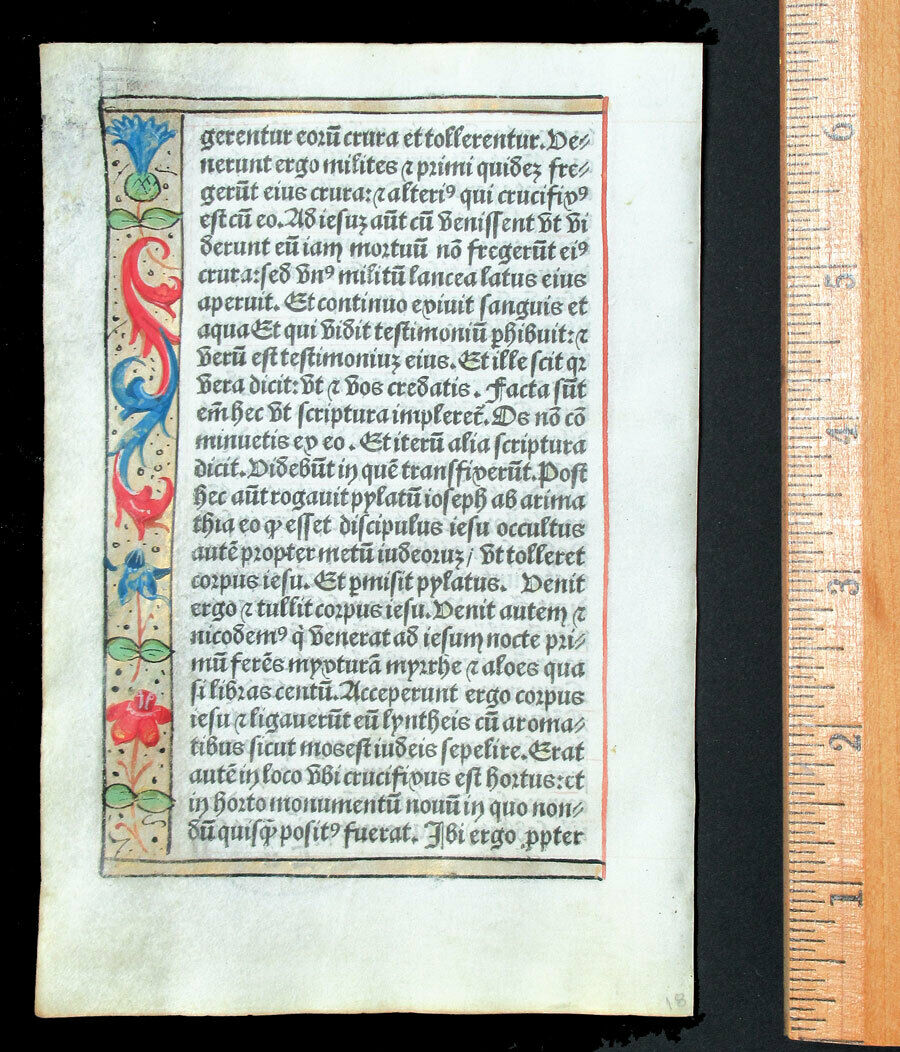 gerentur eorū crura et tollerentur. Ve⸗
nerunt ergo milites ⁊ primi quidez fre⸗
gerūt eius crura: ⁊ alteriꝰ qui crucifixꝰ
est cū eo. Ad iesuz aūt cū venissent vt vi
derunt eū iam mortuū nō fregerūt eiꝰ
crura: sed vnꝰ militū lancea latus eius
aperuit. Et continuo exiuit sanguis et
aqua Et qui vidit testimoniū phibuit: ⁊
verū est testimoniuz eius. Et ille scit qꝛ
vera dicit: vt ⁊ vos credatis. Facta sūt
em̄ hec vt scriptura impleret̄. Os nō cō
minuetis ex eo. Et iterū alia scriptura
dicit. Videbūt in quē transfixerūt. Post
hec aūt rogauit pylatū ioseph ab arima
thia eo ꝙ esset discipulus iesu occultus
autē propter metū iudeoruz / vt tolleret
corpus iesu. Et ꝑmisit pylatus. Venit
ergo ⁊ tullit corpus iesu. Venit autem ⁊
nicodemꝰ q̇ venerat ad iesum nocte pri⸗
mū ferēs mixturā myrrhe ⁊ aloes qua
si libras centū. Acceperunt ergo corpus
iesu ⁊ ligauerūt eū lyntheis cū aroma⸗
tibus sicut mos est iudeis sepelire. Erat
autē in loco vbi crucifixus est hortus: et
in horto monumentū nouū in quo non⸗
dū quisꝙ̄ positꝰ fuerat. Ibi ergo ꝓpter
18
6
5
4
3
2
1